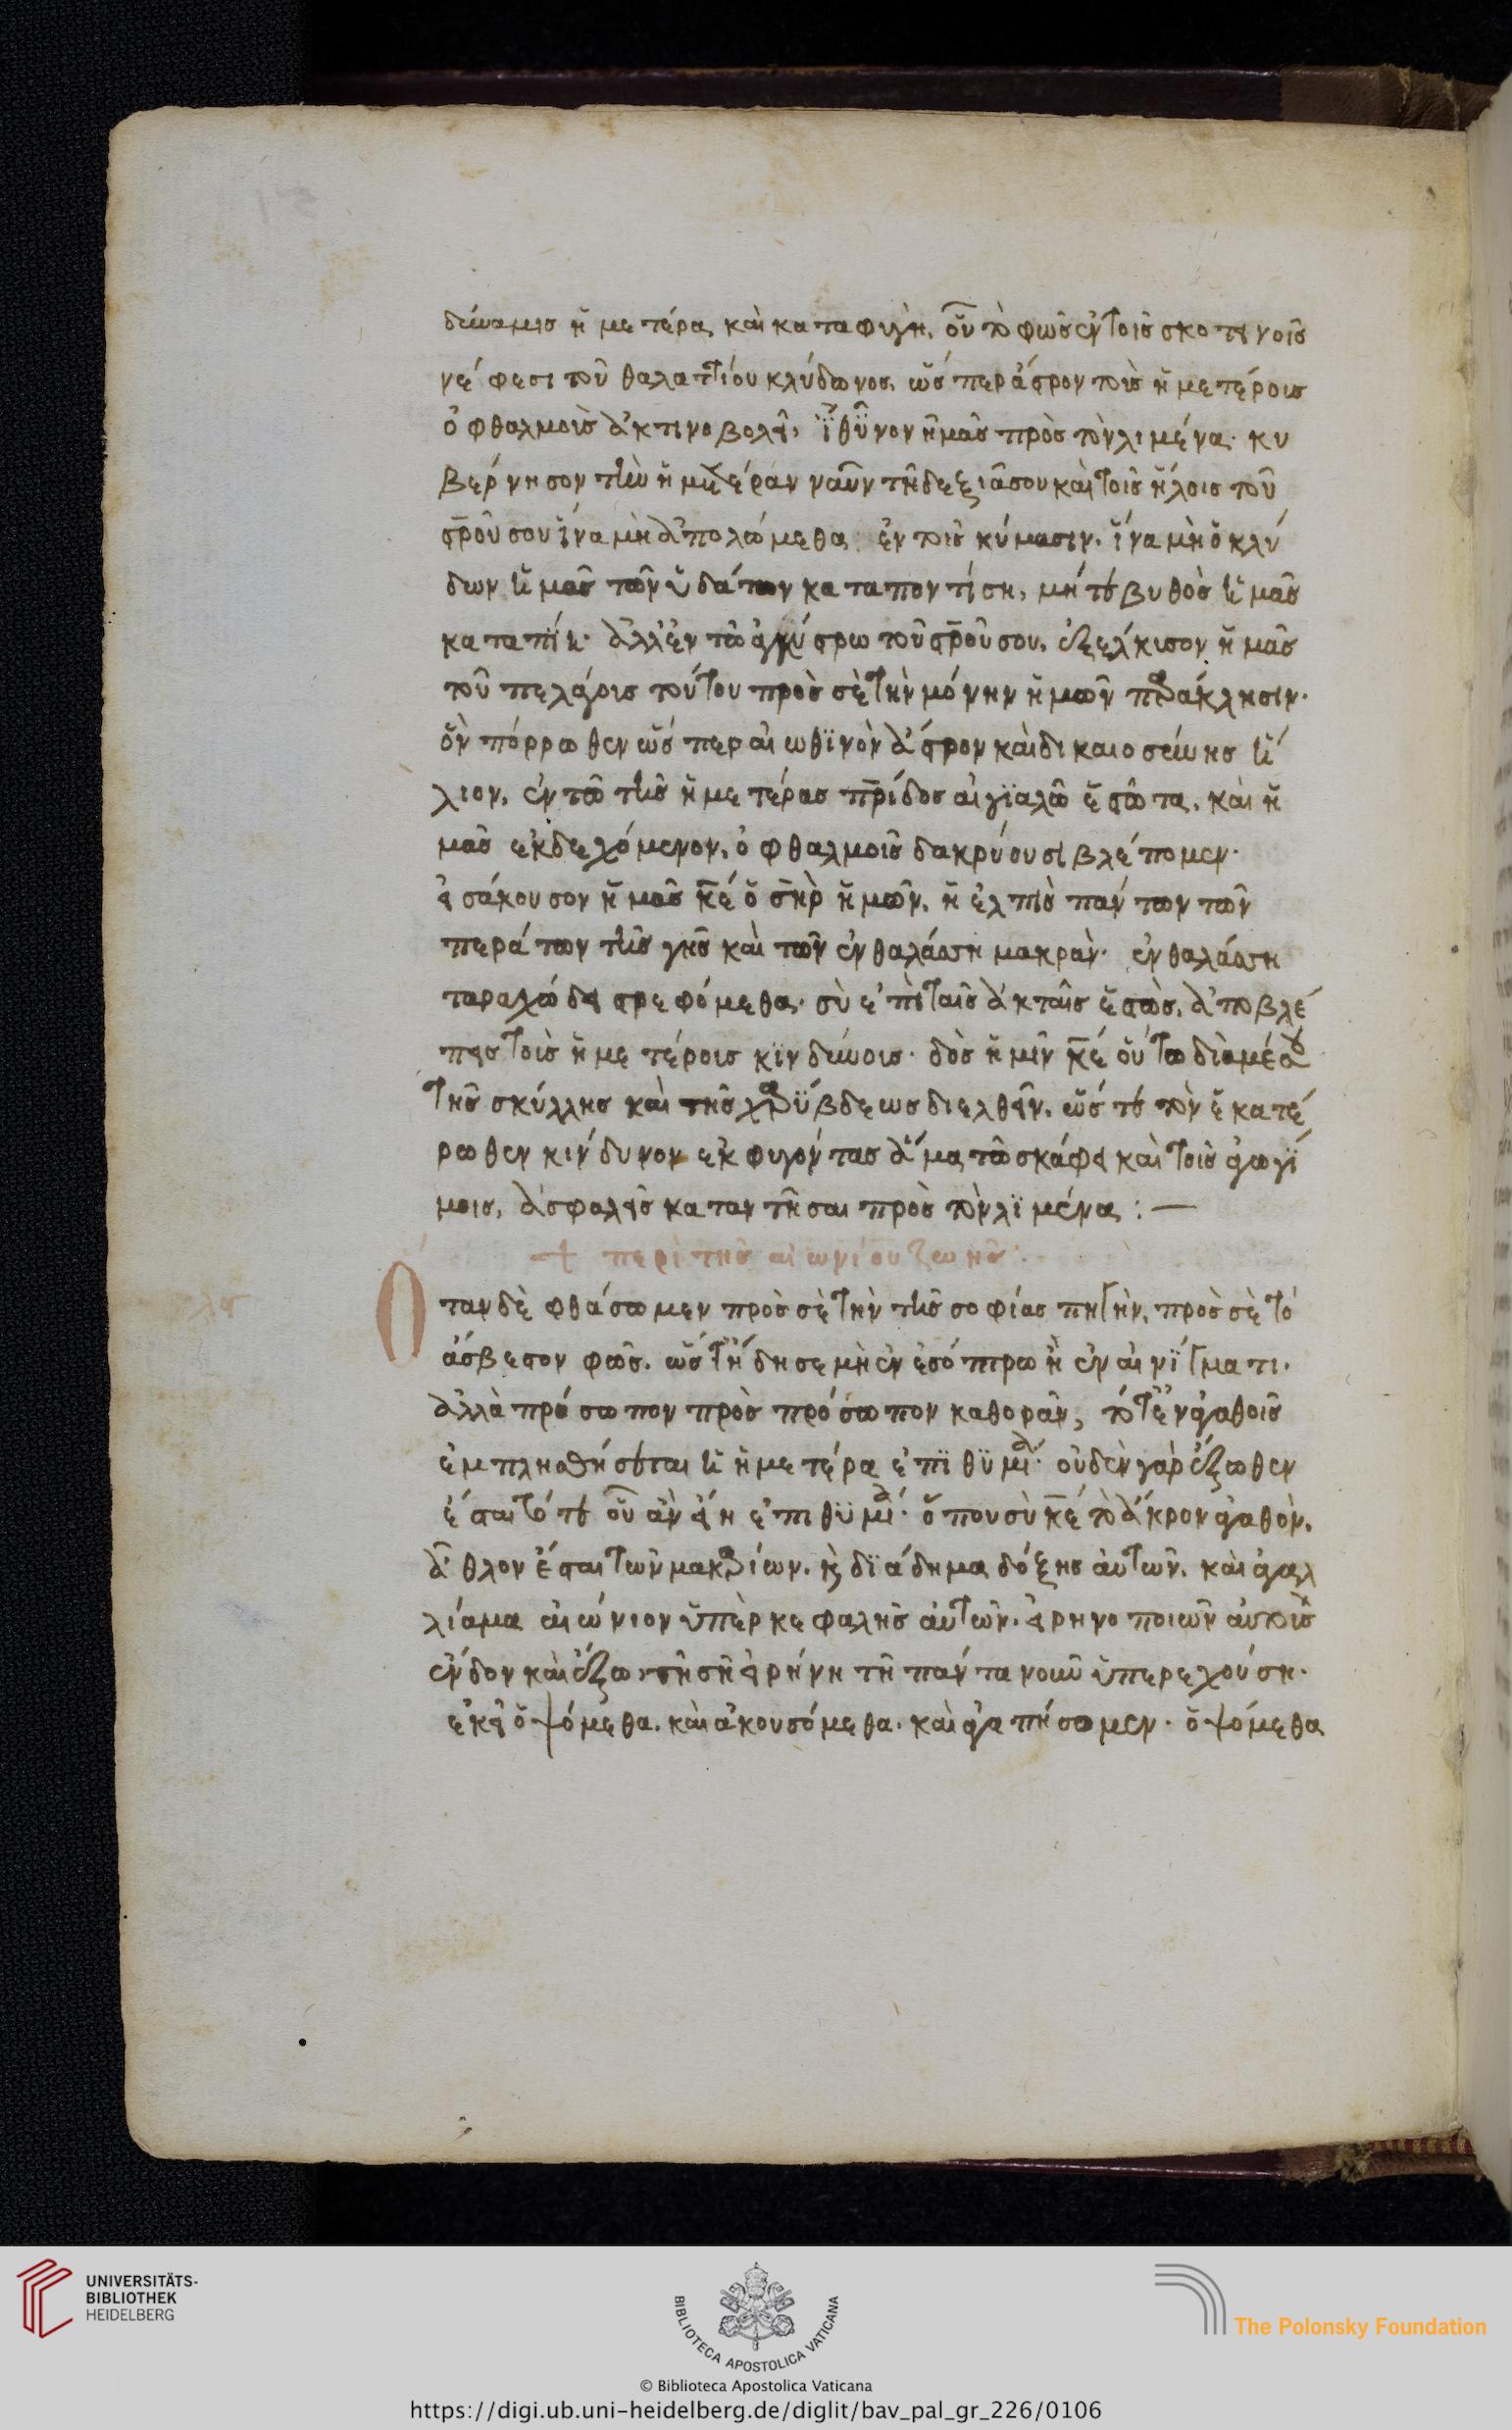 δύναμισ ἡμετέρα καὶ καταφυγὴ, οὗ τὸ φῶσ ἐν τοῖσ σκοτεινοῖσ
νέφεσι τοῦ θαλαττίου κλύδωνοσ, ὥσπερ ἄστρον τοῖσ ἡμετέροισ
ὀφθαλμοῖσ ἀκτινοβολεῖ, ἴθυνον ἡμᾶσ πρὸσ τὸν λιμένα· κυ
βέρνησον τὴν ἡμετέραν ναῦν τῇ δεξιᾷ σου καὶ τοῖσ ἥλοισ τοῦ
σ̅ρ̅οῦ σου ἵνα μὴ ἀπολώμεθα ἐν τοῖσ κύμασιν. ἵνα μὴ ὁ κλύ
δων ἡμᾶσ τῶν ὑδάτων καταποντίση, μήτε βυθὸσ ἡμᾶσ
καταπίη· ἀλλ' ἐν τῶ ἀγκύστρω τοῦ σ̅ρ̅οῦ σου, ἐξέλκισον ἡμᾶσ
τοῦ πελάγουσ τούτου πρὸσ σὲ τὴν μόνην ἡμῶν παράκλησιν·
ὃν πόρρωθεν ὥσπερ αἰωθϊνὸν ἄστρον καὶ δικαιοσύνησ ἥ
λιον, ἐν τῶ τῆσ ἡμετέρασ π̅ρ̅ίδοσ αἰγϊαλῶ ἑστῶτα, καὶ ἡ
μᾶσ ἐκδεχόμενον, ὀφθαλμοῖσ δακρύουσι βλέπομεν·
εἰσάκουσον ἡμᾶσ κ̅ε̅ ὁ σ̅η̅ρ̅ ἡμῶν, ἡ ἐλπὶσ πάντων τῶν
περάτων τῆσ γῆσ καὶ τῶν ἐν θαλάσση μακρὰν· ἐν θαλάσση
ταραχώδει στρεφόμεθα· σὺ ἐπὶ ταῖσ ἀκταῖσ ἑστὼσ, ἀποβλέ
πεισ τοῖσ ἡμετέροισ κϊνδύνοισ· δὸσ ἡμῖν κ̅ε̅ οὕτω διὰ μέσου
τῆσ σκύλλησ καὶ τῆσ χαρΰβδεωσ διελθεῖν, ὥστε τὸν ἑκατέ
ρωθεν κίνδυνον ἐκφυγόντασ ἅμα τῶ σκάφει καὶ τοῖσ ἀγωγί
μοισ, ἀσφαλεῖσ καταντῆσαι πρὸσ τὸν λϊμένα :—
+ περὶ τῆσ αἰωνίου ζωῆσ :
Ὅταν δὲ φθάσωμεν πρὸσ σὲ τὴν τῆσ σοφίασ πηγὴν, πρὸσ σὲ τὸ
ἄσβεστον φῶσ. ὥστ' ἤδη σε μὴ ἐν ἐσόπτρω ἢ ἐν αἰνίγματι.
ἀλλὰ πρόσωπον πρὸσ πρόσωπον καθορᾶν, τότ' ἐν ἀγαθοῖσ
ἐμπλησθήσεται ἡ ἡμετέρα ἐπϊθϋμία· οὐδὲν γὰρ ἔξωθεν
ἔσται τότε οὗ ἂν εἴη ἐπιθϋμία· ὅπου σὺ κ̅ε̅ τὸ ἄκρον ἀγαθὸν,
ἆθλον ἔσται τῶν μακαρίων, κ̀ διάδημα δόξησ αὐτῶν, καὶ ἀγαλ
λίαμα αἰώνιον ὑπὲρ κεφαλῆσ αὐτῶν. εἰρηνοποιῶν αὐτοῖσ
ἔνδον καὶ ἔξω τῆ σῆ εἰρήνη τῆ πάντα νοῦν ὑπερεχούση·
ἐκεῖ ὀψόμεθα. καὶ ἀκουσόμεθα. καὶ ἀγαπήσωμεν· ὀψόμεθα
UNIVERSITÄTS-
BIBLIOTHEK
HEIDELBERG
BIBLIOTECA APOSTOLICA VATICANA
The Polonsky Foundation
© Biblioteca Apostolica Vaticana
https://digi.ub.uni-heidelberg.de/diglit/bav_pal_gr_226/0106